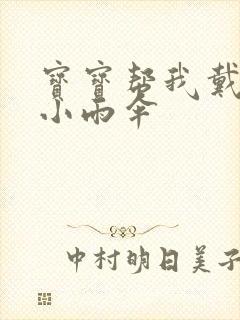 寶寶帮我戴
小雨伞
中村明日美子